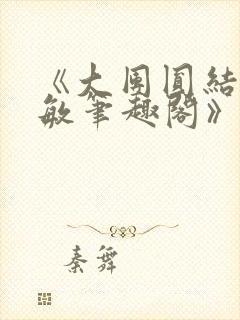 《大团圆结
敏笔趣阁》
秦舞